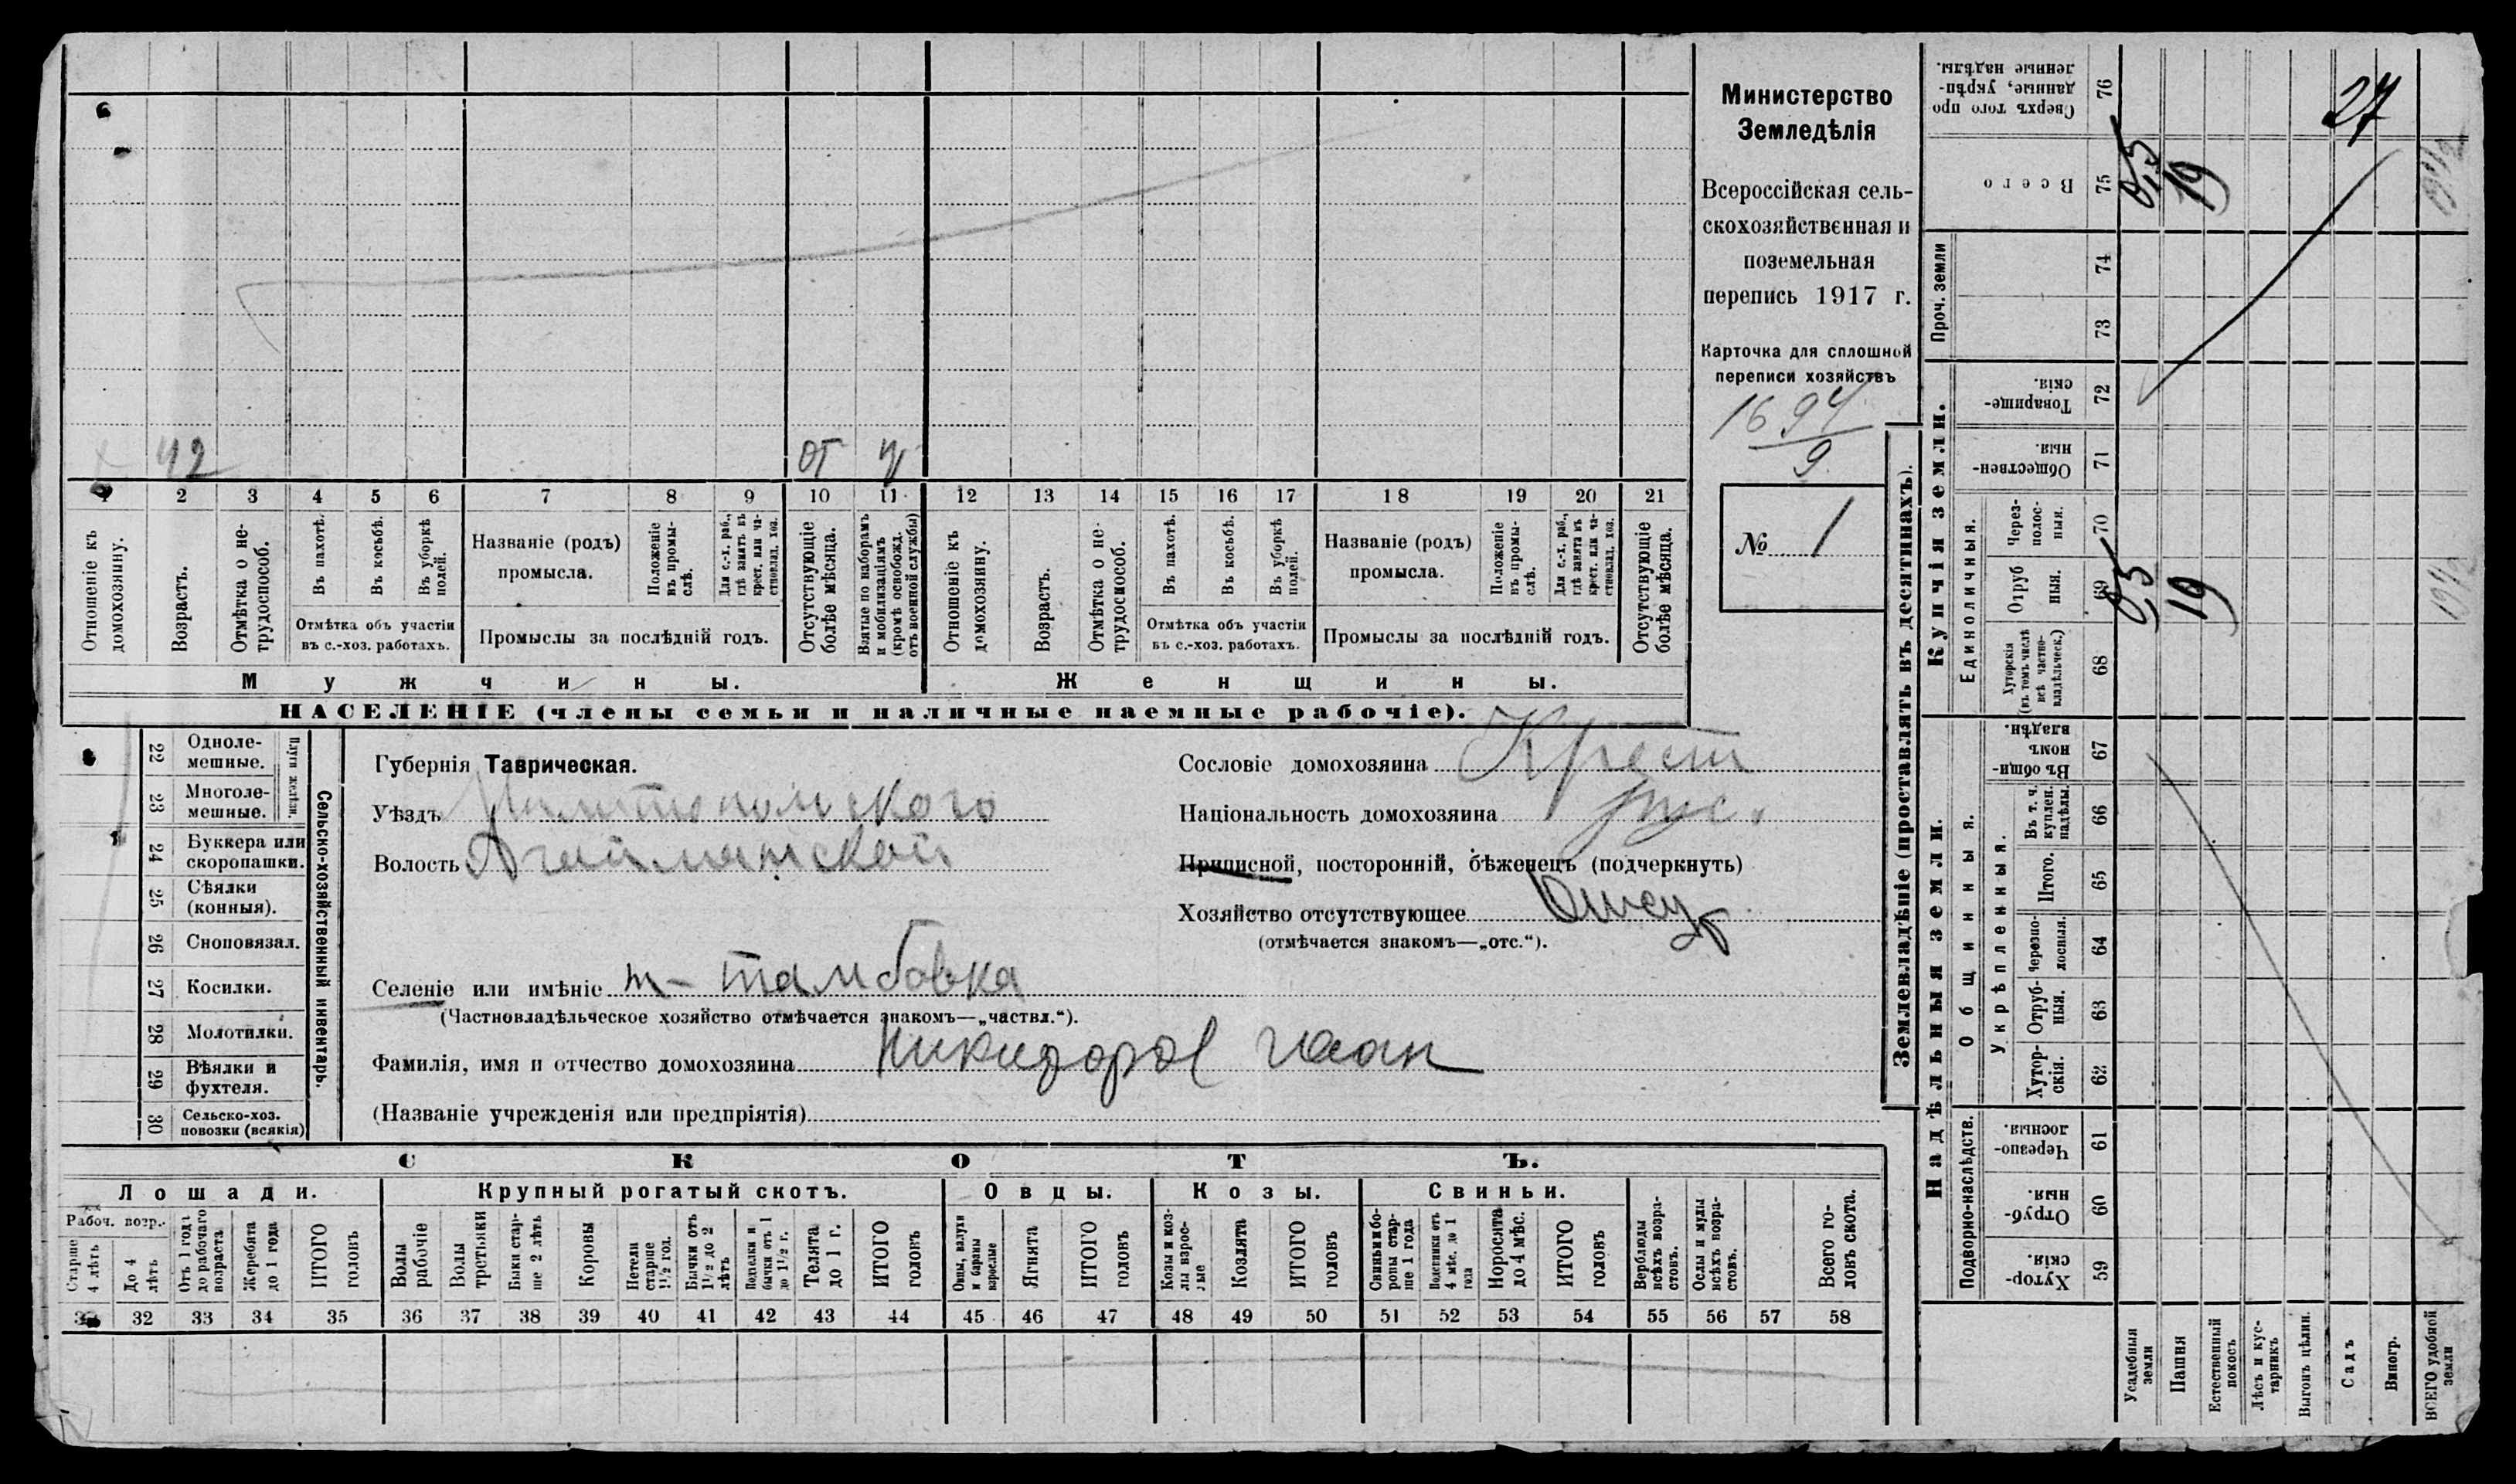 6
42 от ч
1 2 3 4 5 6 7 8 9 10 11 12 13 14 15 16 17 18 19 20 21
Отношеніе къ домохозяину.
Возрастъ.
Отмѣтка о не-трудоспособ.
Въ пахотѣ.
Въ косьбѣ.
Въ уборкѣ полей.
Отмѣтка объ участіи
въ с.-хоз. работахъ.
Названіе (родъ)
промысла.
Положеніе въ промы-слѣ.
Для с.-х. раб., гдѣ занятъ въ крест. или ча-стновлад. хоз.
Промыслы за послѣдній годъ.
Отсутствующіе болѣе мѣсяца.
Взятые по наборамъ и мобилизаціямъ (кромѣ освобожд. отъ военной службы)
Отношеніе къ домохозяину.
Возрастъ.
Отмѣтка о не-трудоспособ.
Въ пахотѣ.
Въ косьбѣ.
Въ уборкѣ полей.
Отмѣтка объ участіи
въ с.-хоз. работахъ.
Названіе (родъ)
промысла.
Положеніе въ промы-слѣ.
Для с.-х. раб., гдѣ занята въ крест. или ча-стновлад. хоз.
Промыслы за послѣдній годъ.
Отсутствующіе болѣе мѣсяца.
Мужчины.
Женщины.
НАСЕЛЕНІЕ (члены семьи и наличные наемные рабочіе).
Министерство
Земледѣлія
Всероссійская сель-
скохозяйственная и
поземельная
перепись 1917 г.
Карточка для сплошной
переписи хозяйствъ
1694
9
№ 1
22 Одноле-мешные.
23 Многоле-мешные.
Плуги желѣзн.
24 Буккера или скоропашки.
25 Сѣялки (конныя).
26 Сноповязал.
27 Косилки.
28 Молотилки.
29 Вѣялки и фухтеля.
30 Сельско-хоз. повозки (всякія)
Сельско-хозяйственный инвентарь.
Губернія Таврическая.
Уѣздъ Мелитопольского
Волость Агайманской
Сословіе домохозяина Крест
Національность домохозяина рус.
Приписной, посторонній, бѣженецъ (подчеркнуть)
Хозяйство отсутствующее Отсу
(отмѣчается знакомъ—„отс.“).
Селеніе или имѣніе Тамбовка
(Частновладѣльческое хозяйство отмѣчается знакомъ—„частвл.“).
Фамилія, имя и отчество домохозяина Никифоров Иван
(Названіе учрежденія или предпріятія)
СКОТЪ.
Лошади. Крупный рогатый скотъ. Овцы. Козы. Свиньи.
Рабоч. возр.
Старше 4 лѣтъ
До 4 лѣтъ
Отъ 1 года до рабочаго возраста
Жеребята до 1 года
ИТОГО головъ
Волы рабочіе
Волы третьяки
Быки стар-ше 2 лѣтъ
Коровы
Нетели старше 1½ год.
Бычки отъ 1½ до 2 лѣтъ
Нетелки и бычки отъ 1 до 1½ г.
Телята до 1 г.
ИТОГО головъ
Овцы, валухи и бараны взрослые
Ягнята
ИТОГО головъ
Козы и коз-лы взрос-лые
Козлята
ИТОГО головъ
Свиньи и бо-ровы стар-ше 1 года
Подсвинки отъ 4 мѣс. до 1 года
Поросята до 4 мѣс.
ИТОГО головъ
Верблюды всѣхъ возра-стовъ.
Ослы и мулы всѣхъ возра-стовъ.
Всего го-ловъ скота.
31 32 33 34 35 36 37 38 39 40 41 42 43 44 45 46 47 48 49 50 51 52 53 54 55 56 57 58
Землевладѣніе (проставлять въ десятинахъ).
Сверхъ того про данные, укрѣп-ленные надѣлы. 76
27
Всего 75
0,5 19 19½
Проч. земли 74 73
Купчія земли.
Товарище-скія. 72
Обществен-ныя. 71
Единоличныя.
Через-полос-ныя. 70
Отруб ныя. 69
0,5 19 19½
Хуторскія (въ томъ числѣ всѣ частно-владѣльческ.) 68
Надѣльныя земли.
Общинныя.
Въ общи-номъ владѣн. 67
Укрѣпленныя.
Въ т. ч. куплен. надѣлы. 66
Итого. 65
Черезпо-лосныя. 64
Отруб-ныя. 63
Хутор-скія. 62
Подворно-наслѣдств.
Черезпо-лосныя. 61
Отруб-ныя. 60
Хутор-скія. 59
Усадебныя земли
Пашня
Естественный покосъ
Лѣсъ и кус-тарникъ
Выгонъ цѣлин.
Садъ
Виногр.
ВСЕГО удобной земли